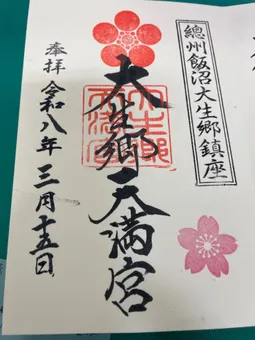 總州飯沼大生郷鎮座
大生郷天満宮
奉拝 令和八年三月十五日